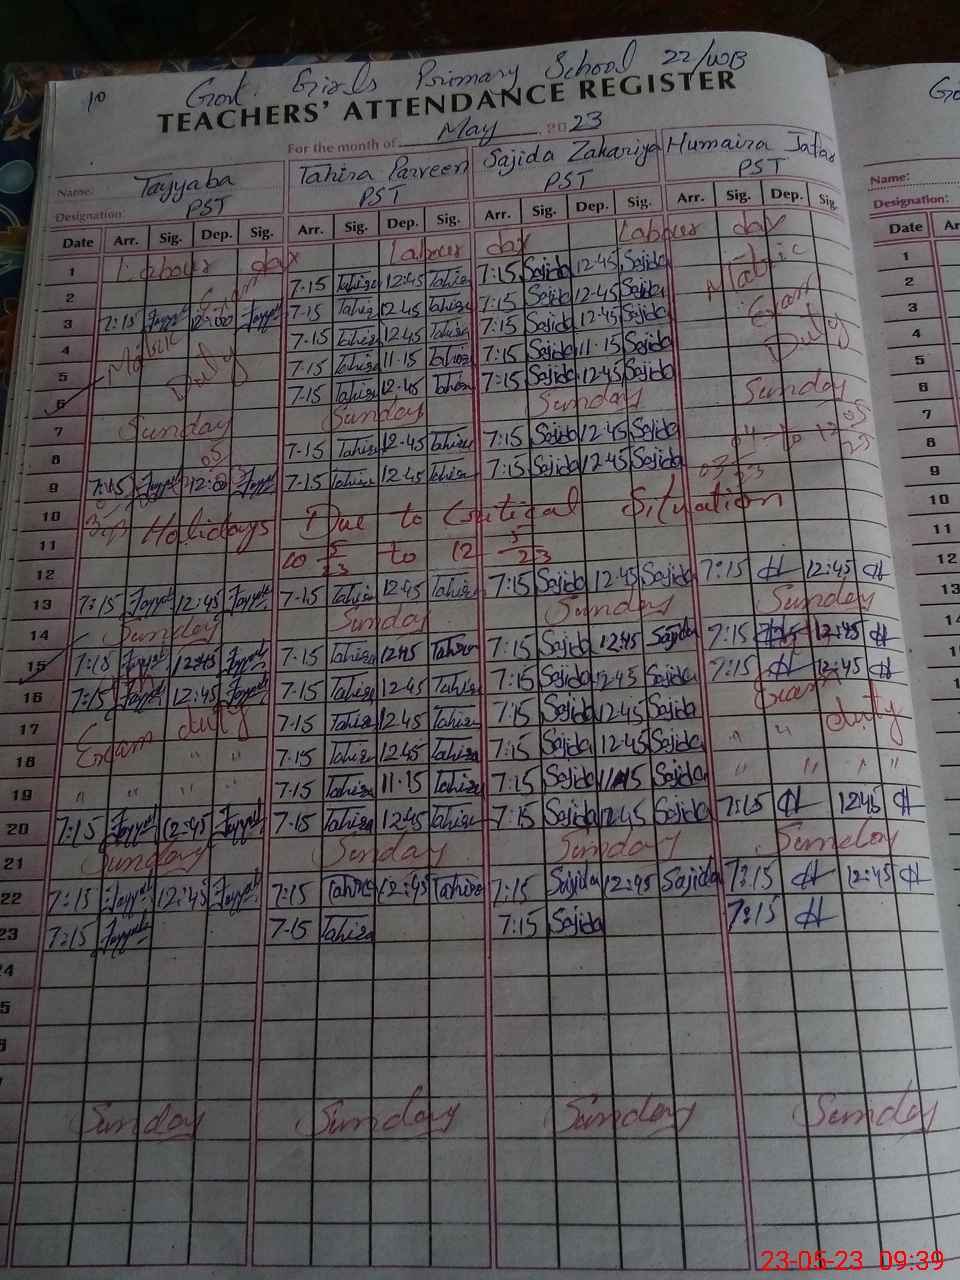 10
Govt. Girls Primary School 22/WB
TEACHERS' ATTENDANCE REGISTER
For the month of May, 2023
Name: Tayyaba Tahira Parveen Sajida Zahariya Humaira Jafar
Designation: PST PST PST PST
Date Arr. Sig. Dep. Sig. Arr. Sig. Dep. Sig. Arr. Sig. Dep. Sig. Arr. Sig. Dep. Sig.
1 Labour day Labour day Labour day
2 7-15 Tahira 12:45 Tahira 7:15 Sajida 12-45 Sajida Matric
3 7:15 Tayyab 12:00 Tayyab 7-15 Tahira 12.45 Tahira 7:15 Sajida 12-45 Sajida Exam
4 Matric 7-15 Tahira 12.45 Tahira 7:15 Sajida 12-45 Sajida Duty
5 Duty 7-15 Tahira 11-15 Tahira 7:15 Sajida 11-15 Sajida
6 7-15 Tahira 12-45 Tahira 7:15 Sajida 12-45 Sajida
7 Sunday Sunday Sunday Sunday
8 7-15 Tahira 12-45 Tahira 7:15 Sajida 12-45 Sajida
9 7:15 Tayyab 12:00 Tayyab 7-15 Tahira 12.45 Tahira 7:15 Sajida 12-45 Sajida
10 Holidays Due to Critical Situation
11 10 5/23 to 12 5/23
12
13 7:15 Tayyab 12:45 Tayyab 7-15 Tahira 12:45 Tahira 7:15 Sajida 12.45 Sajida 7:15 H 12:45 H
14 Sunday Sunday Sunday Sunday
15 7:15 Tayyab 12:45 Tayyab 7-15 Tahira 12:45 Tahira 7:15 Sajida 12:45 Sajida 7:15 12:45 H
16 7:15 Tayyab 12:45 Tayyab 7-15 Tahira 12-45 Tahira 7:15 Sajida 12-45 Sajida 7:15 H 12:45 H
17 Exam duty 7-15 Tahira 12.45 Tahira 7:15 Sajida 12-45 Sajida Exam duty
18 " " 7-15 Tahira 12.45 Tahira 7:15 Sajida 12-45 Sajida " "
19 " " " " 7-15 Tahira 11-15 Tahira 7:15 Sajida 11-15 Sajida " " " "
20 7:15 Tayyab 12:45 Tayyab 7-15 Tahira 12:45 Tahira 7:15 Sajida 12:45 Sajida 7:15 H 12:45 H
21 Sunday Sunday Sunday Sunday
22 7:15 Tayyab 12:45 Tayyab 7:15 Tahira 12:45 Tahira 7:15 Sajida 12:45 Sajida 7:15 H 12:45 H
23 7:15 Tayyab 7-15 Tahira 7:15 Sajida 7:15 H
Sunday Sunday Sunday Sunday
Name:
Designation:
Date
1
2
3
4
5
6
7
8
9
10
11
12
13
23-05-23 09:39